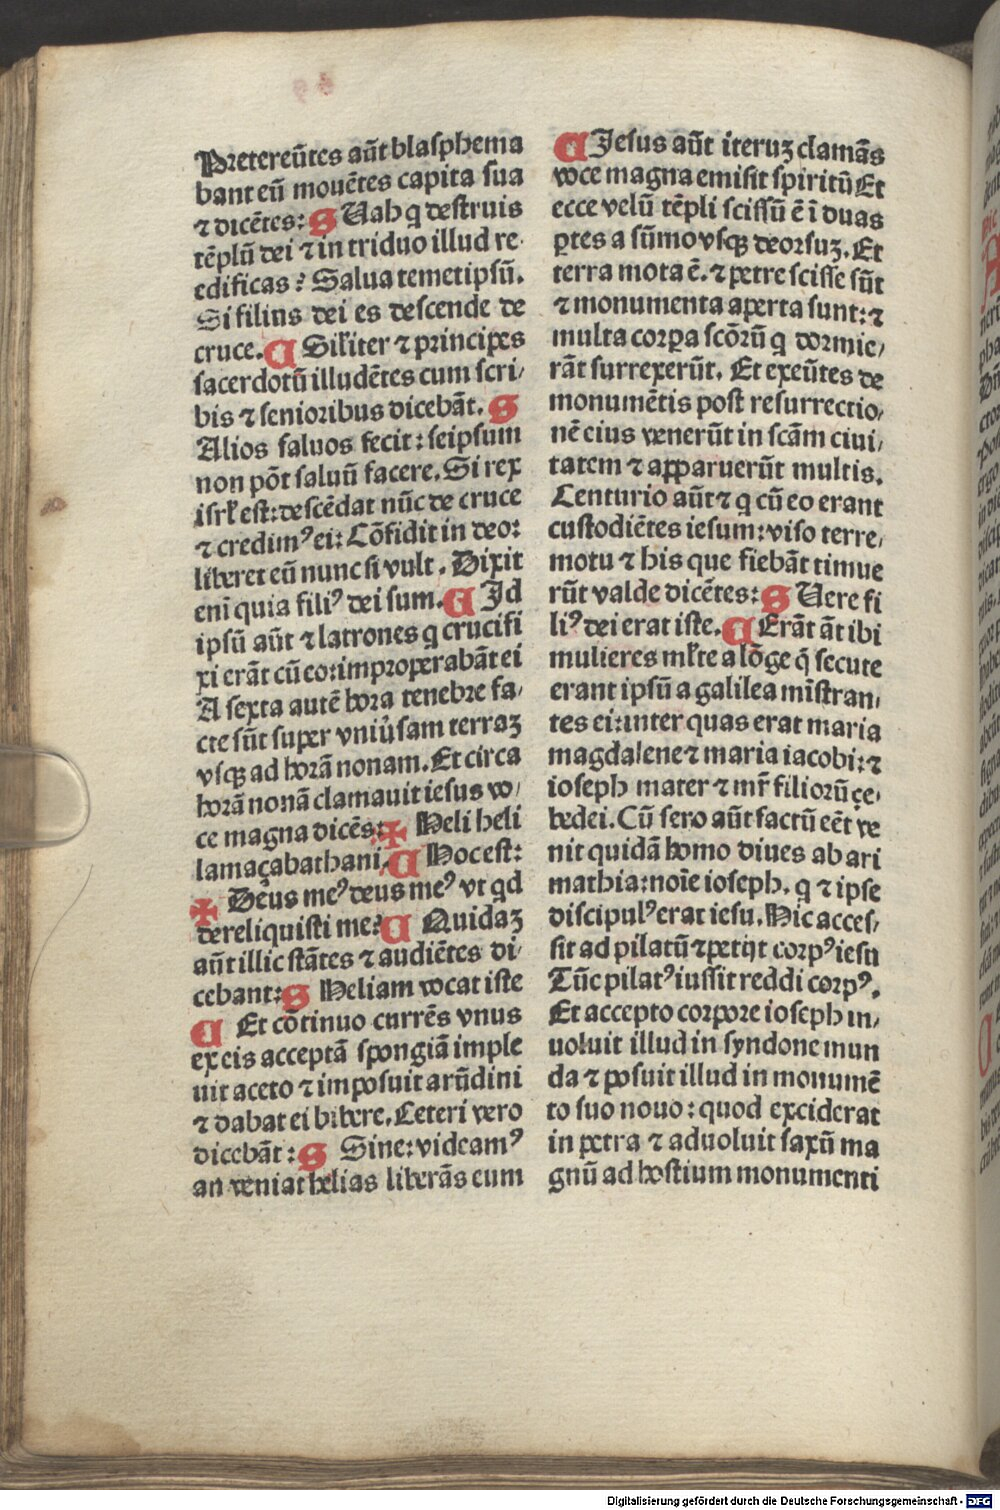 Pretereūtes aūt blasphema
bant eū mouētes capita sua
⁊ dicētes: S Uah q destruis
tēplū dei ⁊ in triduo illud re-
edificas? Salua temetipsū.
Si filius dei es descende de
cruce. C Silīter ⁊ principes
sacerdotū illudētes cum scri/
bis ⁊ senioribus dicebāt. S
Alios saluos fecit: seipsum
non pōt saluū facere. Si rex
isrł est: descēdat nūc de cruce
⁊ credimꝰ ei: Cōfidit in deo:
liberet eū nunc si vult. Dixit
eni quia filiꝰ dei sum. C Id
ipsū aūt ⁊ latrones q crucifi
xi erāt cū eo: improperabāt ei
A sexta autē hora tenebre fa/
cte sūt super vniūsam terraꝫ
vsqꝫ ad horā nonam. Et circa
horā nonā clamauit iesus vo/
ce magna dicēs: ✠ Heli heli
lamaçabathani. C Hoc est:
✠ Deus meꝰ deus meꝰ vt qd
dereliquisti me? C Quidaꝫ
aūt illic stātes ⁊ audiētes di-
cebant: S Heliam vocat iste
C Et cōtinuo currēs vnus
ex eis acceptā spongiā imple
uit aceto ⁊ imposuit arūdini
⁊ dabat ei bibere. Ceteri vero
dicebāt: S Sine: videamꝰ
an veniat helias liberās eum
C Jesus aūt iteruꝫ clamās
voce magna emisit spiritū Et
ecce velū tēpli scissū ē ī duas
ꝑtes a sūmo vsqꝫ deorsuꝫ. Et
terra mota ē. ⁊ petre scisse sūt
⁊ monumenta aperta sunt: ⁊
multa corꝑa scōrū q dormie/
rāt surrexerūt. Et exeūtes de
monumētis post resurrectio/
nē eius venerūt in scām ciui/
tatem ⁊ apparuerūt multis.
Centurio aūt ⁊ q cū eo erant
custodiētes iesum: viso terre/
motu ⁊ his que fiebāt timue
rūt valde dicētes: S Uere fi
liꝰ dei erat iste. C Erāt āt ibi
mulieres młte a lōge q̄ secute
erant ipsū a galilea mīstran/
tes ei: inter quas erat maria
magdalene ⁊ maria iacobi: ⁊
ioseph mater ⁊ mr̄ filiorū çe/
bedei. Cū sero aūt factū eēt ve
nit quidā homo diues ab ari
mathia: noīe ioseph. q ⁊ ipse
discipulꝰ erat iesu. Hic acces/
sit ad pilatū ⁊ petijt corpꝰ iesu
Tūc pilatꝰ iussit reddi corpꝰ.
Et accepto corpore ioseph in/
uoluit illud in syndone mun
da ⁊ posuit illud in monumē
to suo nouo: quod exciderat
in petra ⁊ aduoluit saxū ma
gnū ad hostium monumenti
Digitalisierung gefördert durch die Deutsche Forschungsgemeinschaft - DFG